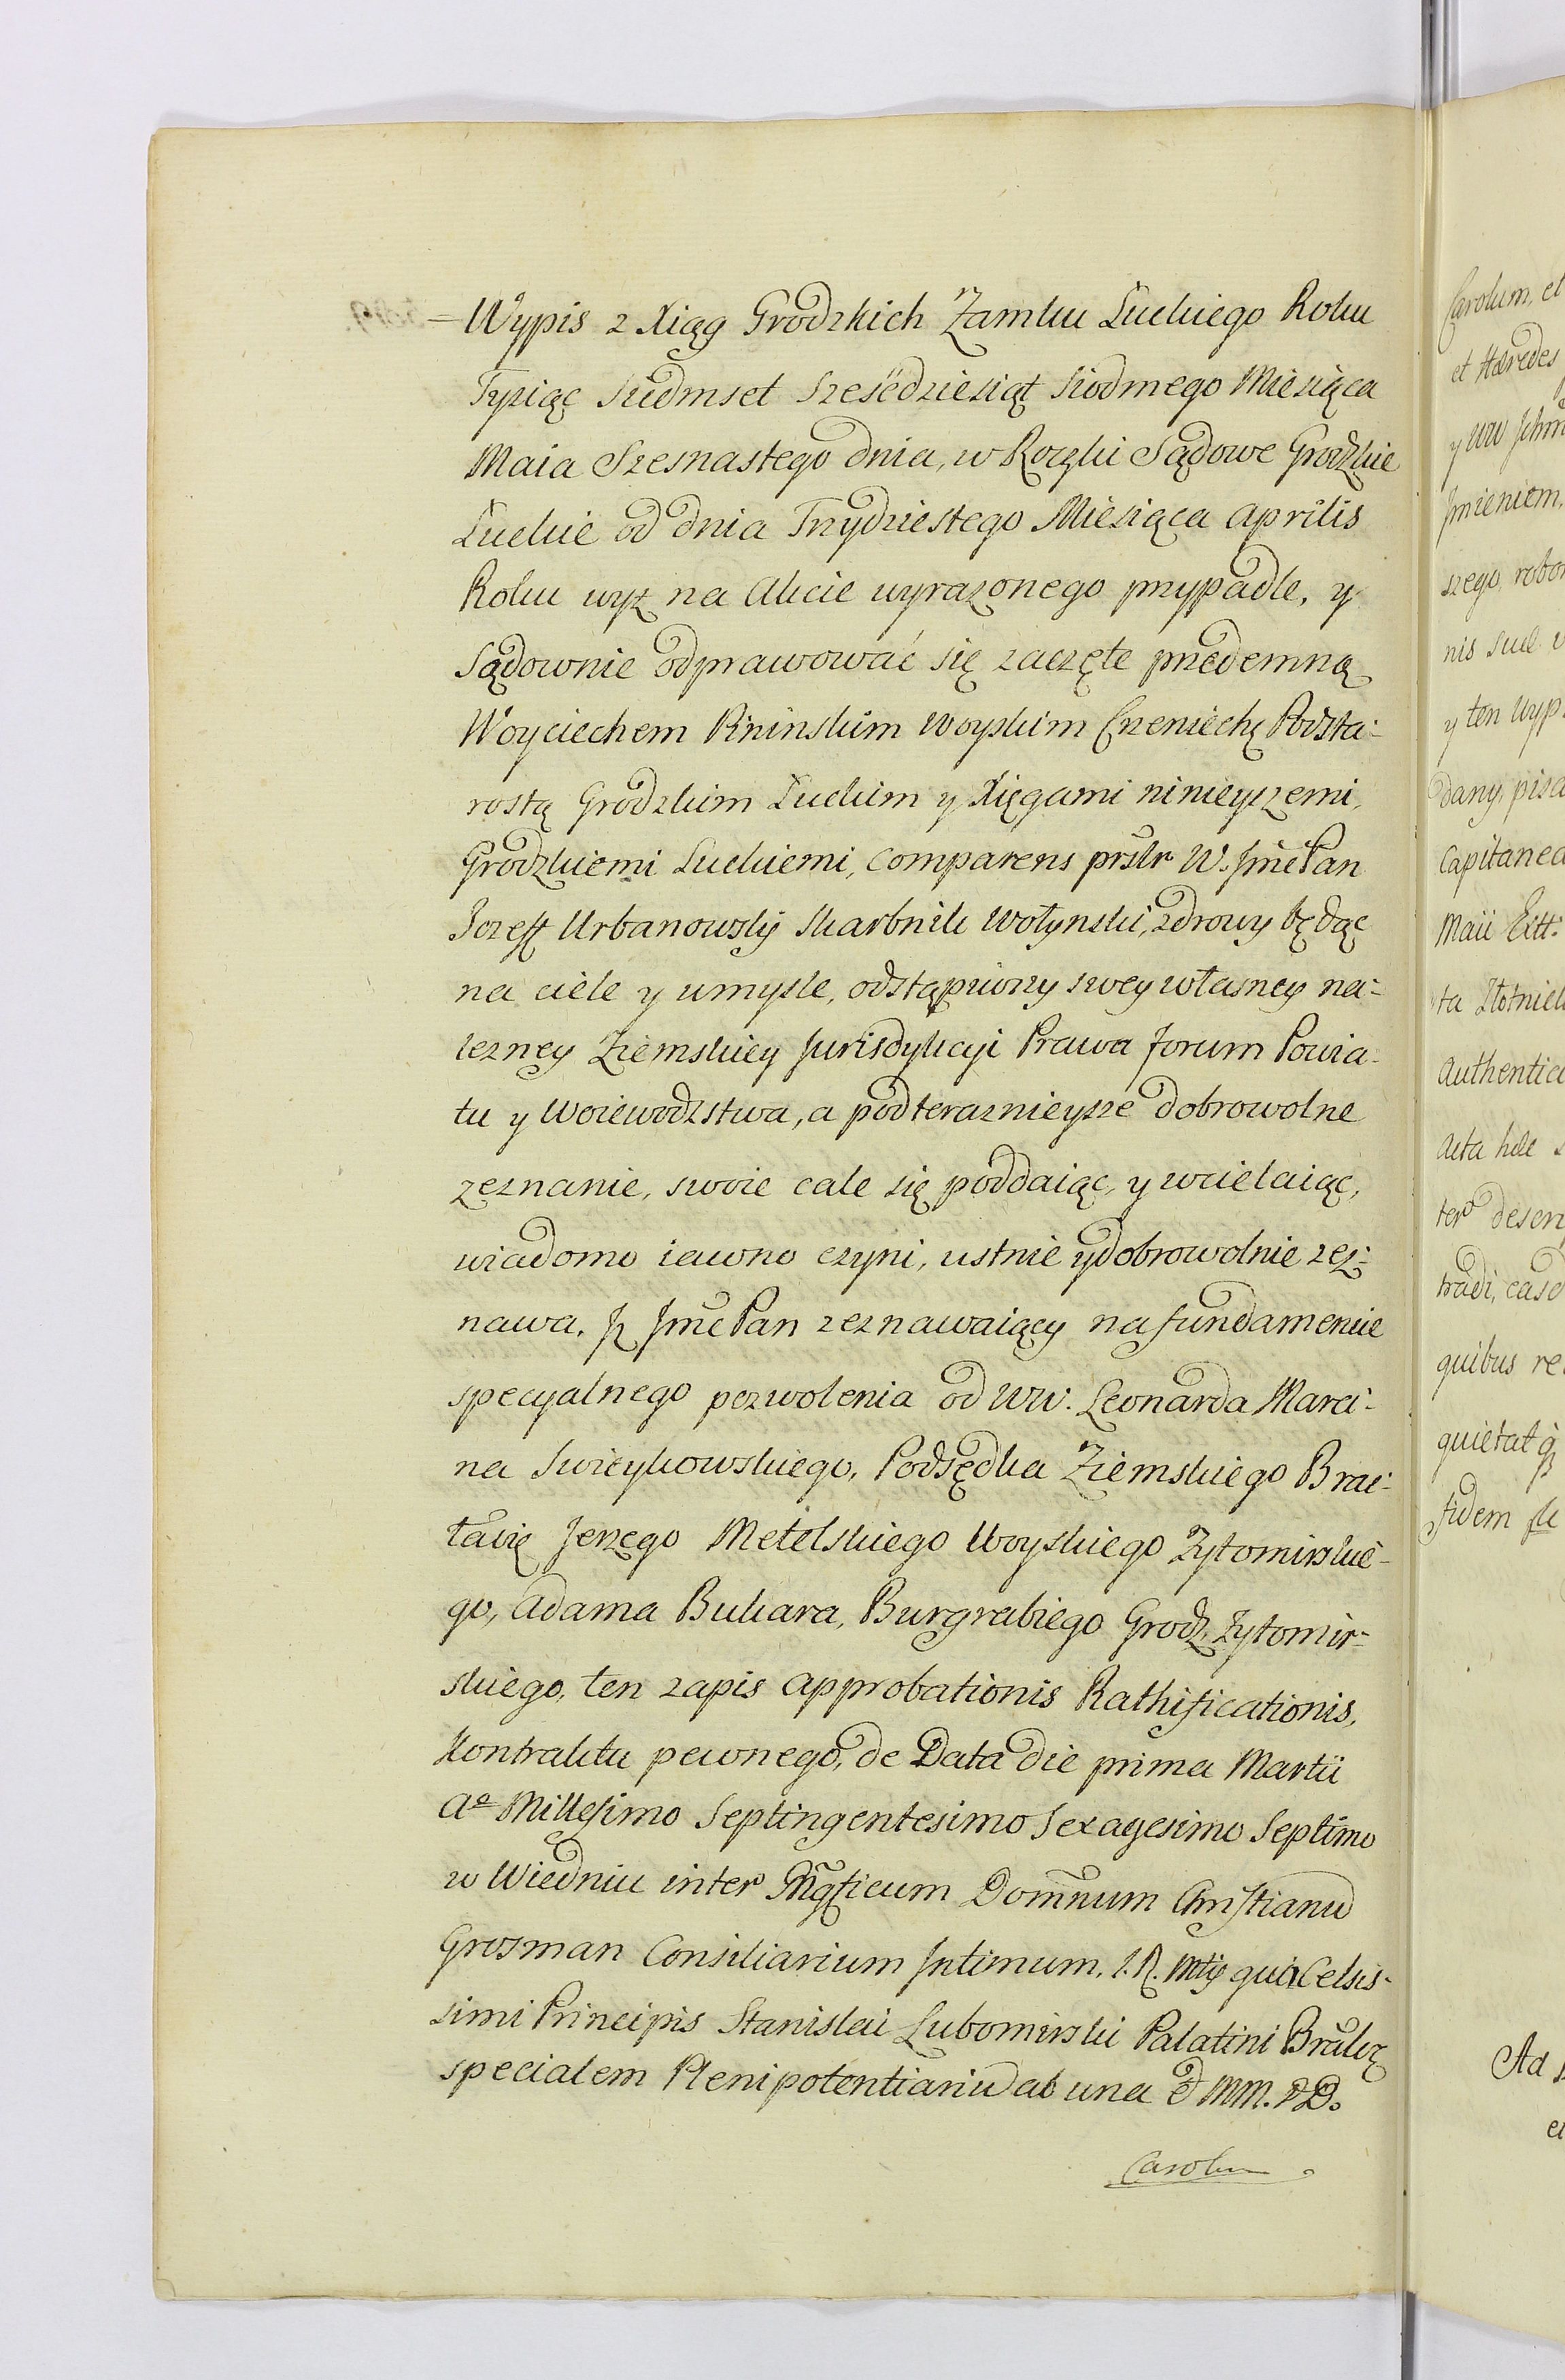 Wypis z Xiąg Grodzkich Zamku Łuckiego Roku
Tysiąc siedmset sześćdziesiąt siodmego Miesiąca
Maia Szesnastego dnia, w Roczki Sądowe Grodzkie
Łuckie od dnia Trzydziestego Miesiąca Aprilis
Roku wyz na Akcie wyrazonego przypadłe, y
Sądownie odprawować się zaczęte przedemną
Woyciechem Rininskim Woyskim Czerniechę Podsta-
rostą Grodzkim Łuckim y Xięgami ninieyszemi,
Grodzkiemi Łuckiemi, Comparens prsłr W. Jmć Pan
Jozeff Urbanowsky Skarbnik Wołynski, zdrowy będąc
na ciele y umysle, odstąpiwszy swey własney na-
lezney Ziemskiey Jurisdykcyi Prawa forum Powia-
tu y Woiewodzstwa, a pod teraznieysze dobrowolne
zeznanie, swoie cale się poddaiąc, y wcielaiąc,
wiadomo iawno czyni, ustnie y dobrowolnie zez-
nawa. Jz Jmć Pan zeznawaiący na fundamencie
specyalnego pozwolenia od WW. Leonarda Marci-
na Swieykowskiego, Podsędka Ziemskiego Brac-
ławię Jerzego Metelskiego Woyskiego Zytomirskie-
go, Adama Bukara, Burgrabiego Grodz. Zytomir-
skiego, ten zapis approbationis Rathificationis,
Kontraktu pewnego, de Data die prima Martii
Aº Millesimo Septingentesimo Sexagesimo Septimo
w Wiedniu inter Mgficum Domnum Chrystianu
Grosman Consiliarium Intimum, S. R. Mtis qua Celsis-
simi Principis Stanislai Lubomirski Palatini
specialem Plenipotentiariu ab una et MM. DD.
Carolum
Carolum, et
et Hæredes
y WW
Jmieniem,
szego, robor
nis suæ
y ten Wyp
dany, pisa
Capitanea
Maii Ext:
ta Złotnick
Authentica
Acta hæc
tero
tradi,
quibus re
quietat
fidem
Ad